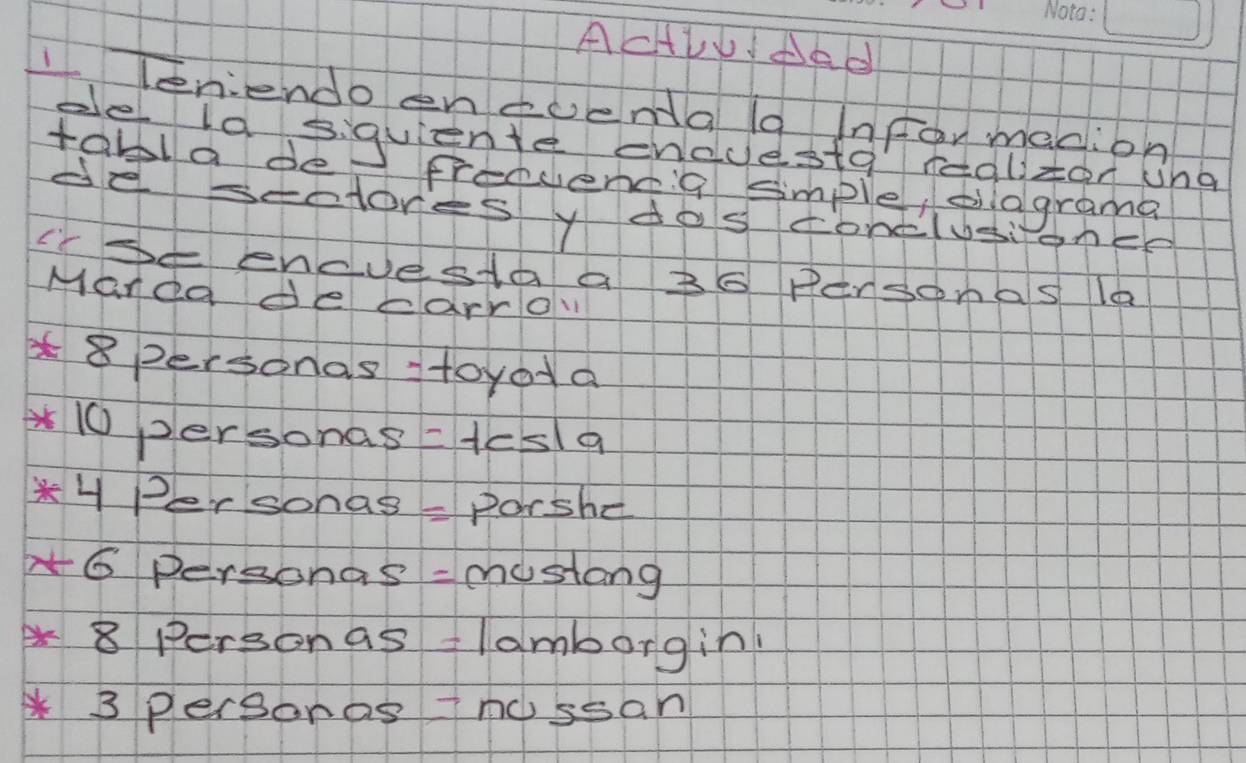 Nota:
Actividad
1 Teniendo en cuenta la informacion
de la siguiente encuesta realizar una
tabla de frecuencia simple, diagrama
de sectores y dos conclusiones
"Se encuesta a 36 Personas la
Marca de carro"
* 8 personas = toyota
* 10 personas = tesla
* 4 Personas = porshe
* 6 personas = mustang
* 8 Personas = lamborgini
* 3 personas = nissan